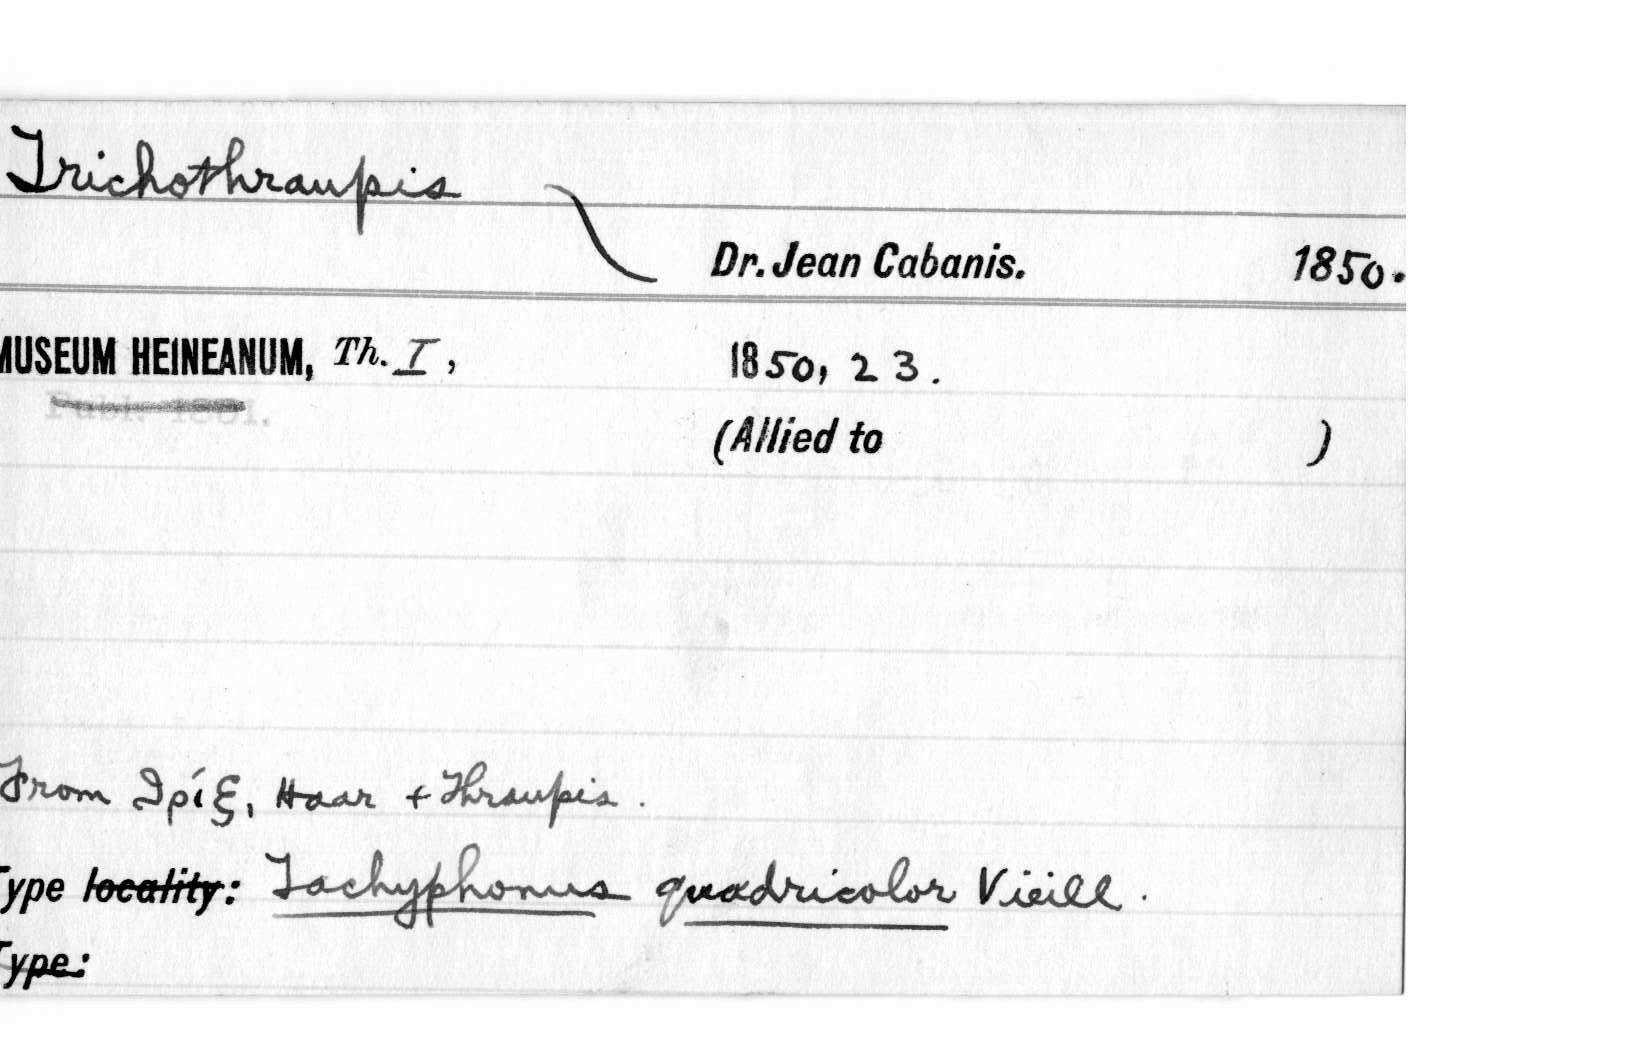 Trichothraupis
Dr. Jean Cabanis. 1850.
MUSEUM HEINEANUM, Th. I, 1850, 23.
Publ. 1851.
(Allied to )
From Θρίξ, Haar + Thraupis.
Type locality: Tachyphonus quadricolor Vieill.
Type: